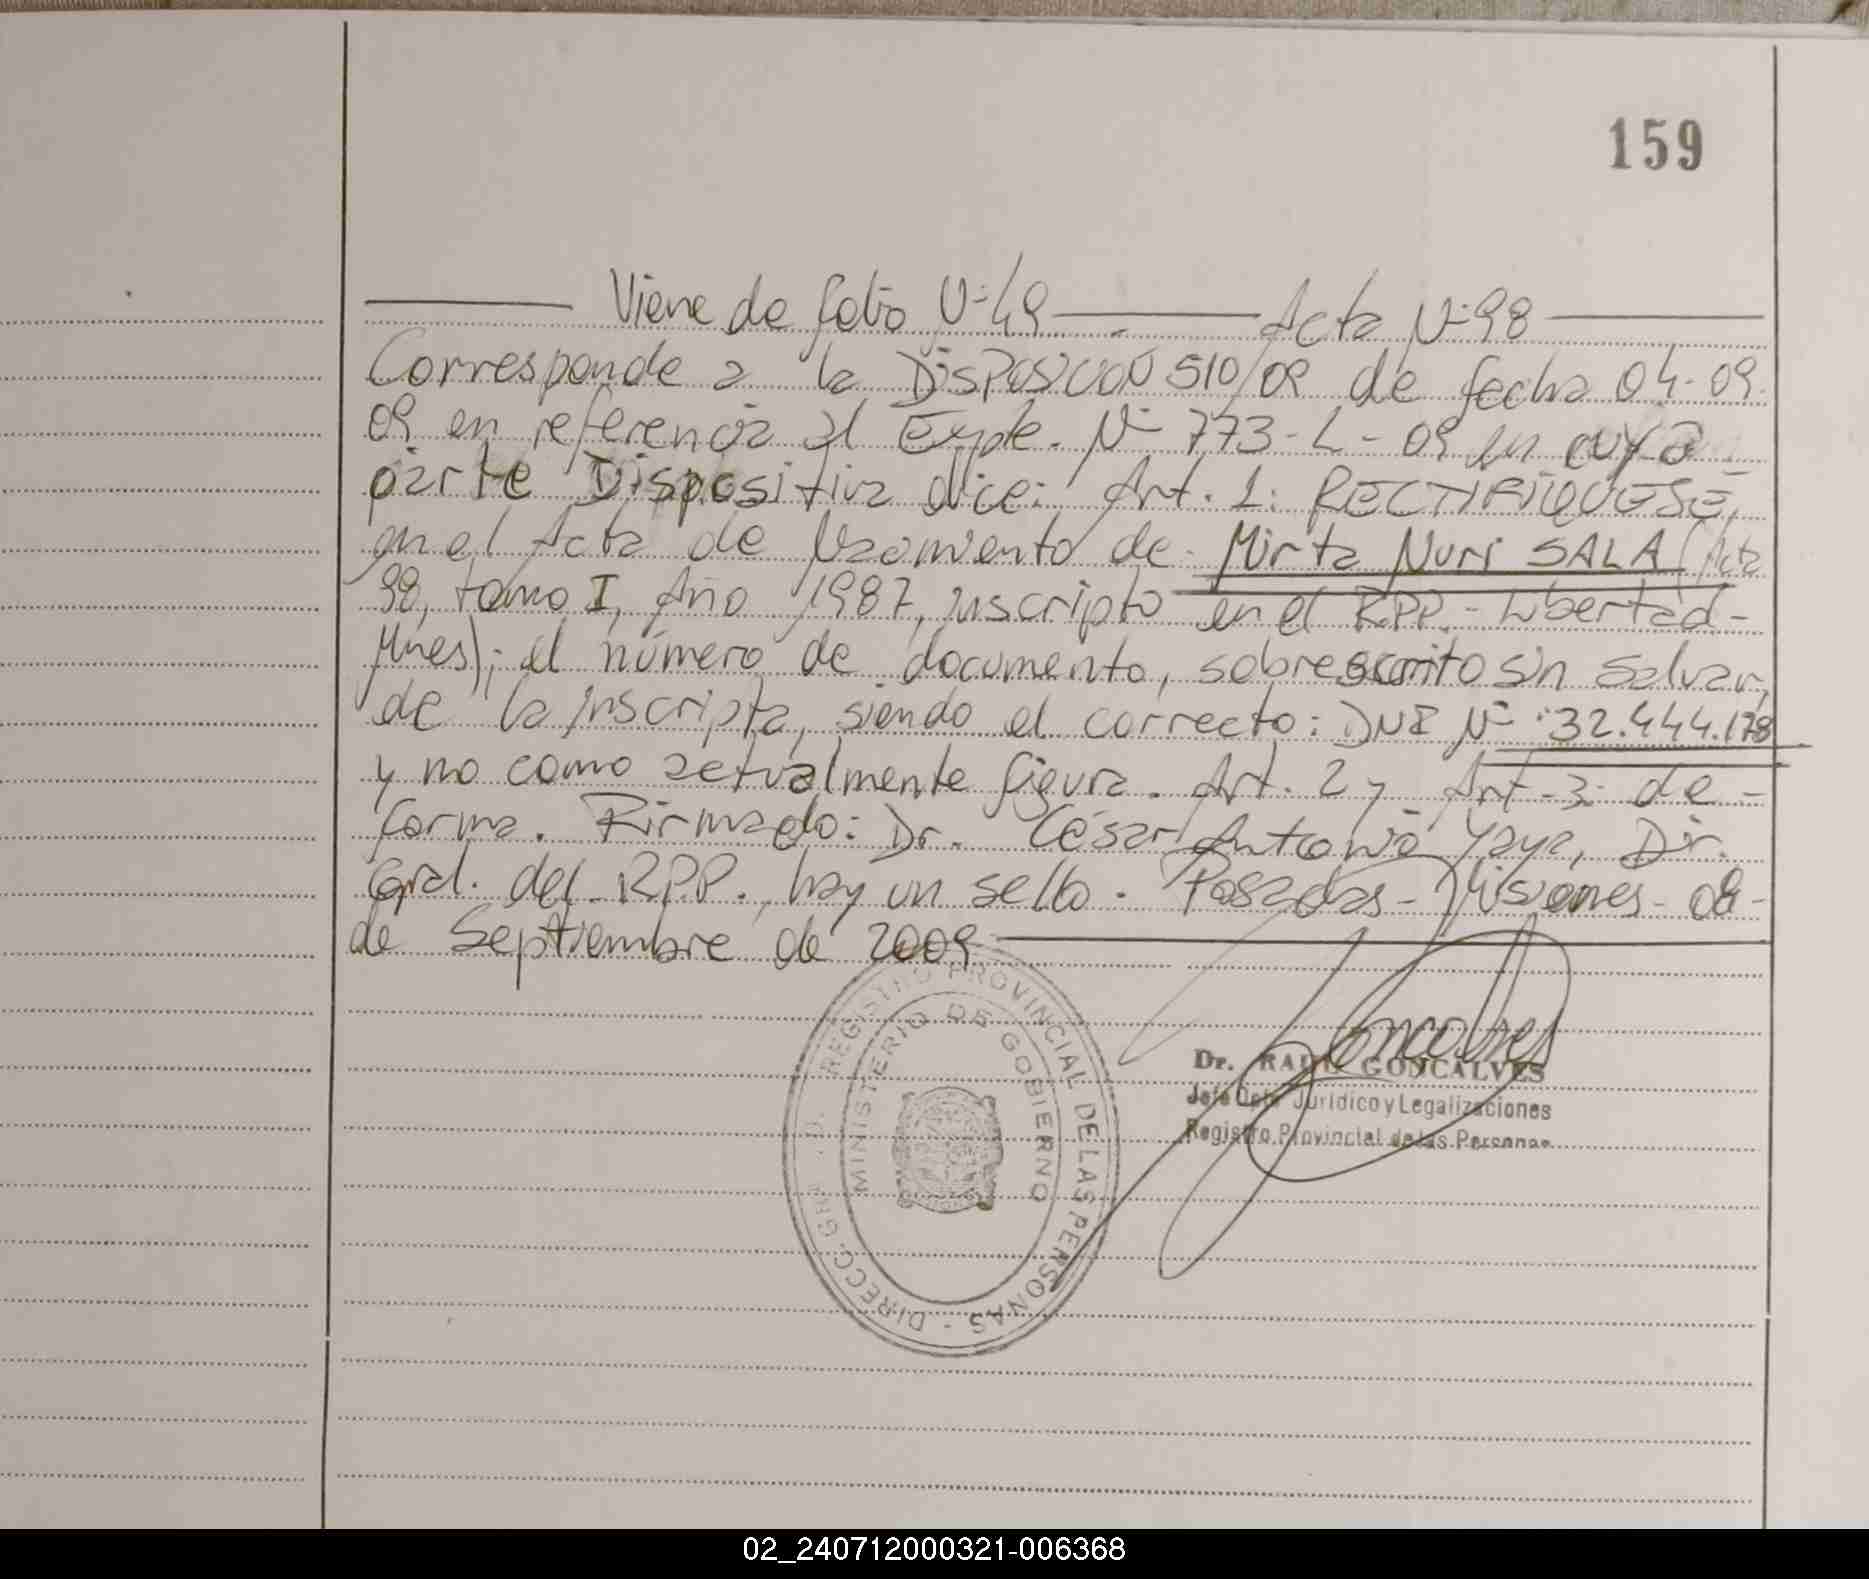 159
Viene de folio Nº 49 Acta Nº 98
Corresponde a la DISPOSICION 510/09 de fecha 04-09-
09 en referencia al Expte. Nº 773-L-09 en cuya
parte Dispositiva dice: Art. 1: RECTIFIQUESE,
en el Acta de Nacimiento de Mirta Nuri SALA (Acta
98, tomo I, Año 1987, inscripto en el RPP.- Libertad-
Mnes); el número de documento, sobreescrito sin salvar,
de la inscripta, siendo el correcto: DNI Nº 32.444.178
y no como actualmente figura. Art. 2 y Art-3: de-
forma. Firmado: Dr. César Antonio Yaya, Dir.
Gral. del RPP., hay un sello. Posadas- Misiones- 08-
de Septiembre de 2009
REGISTRO PROVINCIAL DE LAS PERSONAS - DIRECC. GRAL.
MINISTERIO DE GOBIERNO
Dr. RAUL GONCALVES
Jefe Dpto Jurídico y Legalizaciones
Registro Provincial de las Personas
02_240712000321-006368